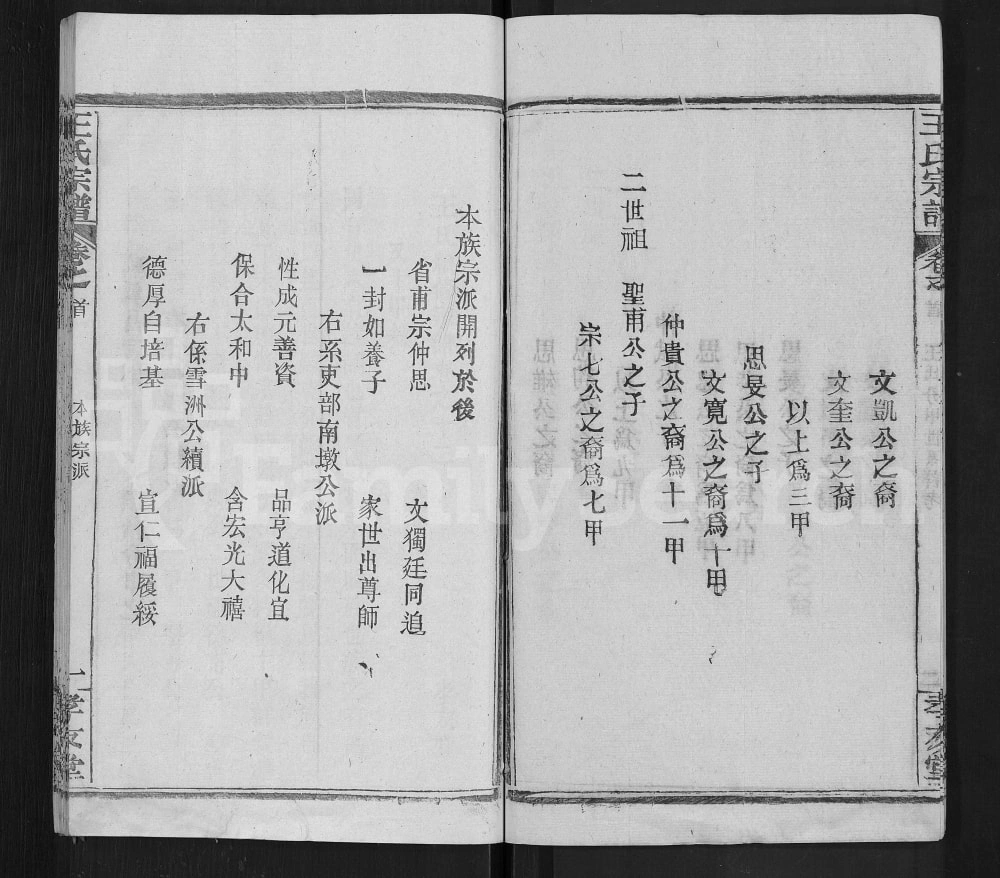 王氏宗譜
卷之
首
二
孝友堂
文凱公之裔
文奎公之裔
以上爲三甲
思旻公之子
文寬公之裔爲十甲
仲貴公之裔爲十一甲
二世祖 聖甫公之子
宗七公之裔爲七甲
本族宗派開列於後
省甫宗仲思 文獨廷同追
一封如養子 家世出尊師
右系吏部南墩公派
性成元善資 品亨道化宜
保合太和中 含宏光大禧
右係雪洲公續派
德厚自培基 宣仁福履綏
王氏宗譜
卷之
首
本族宗派
孝友堂
FamilySearch